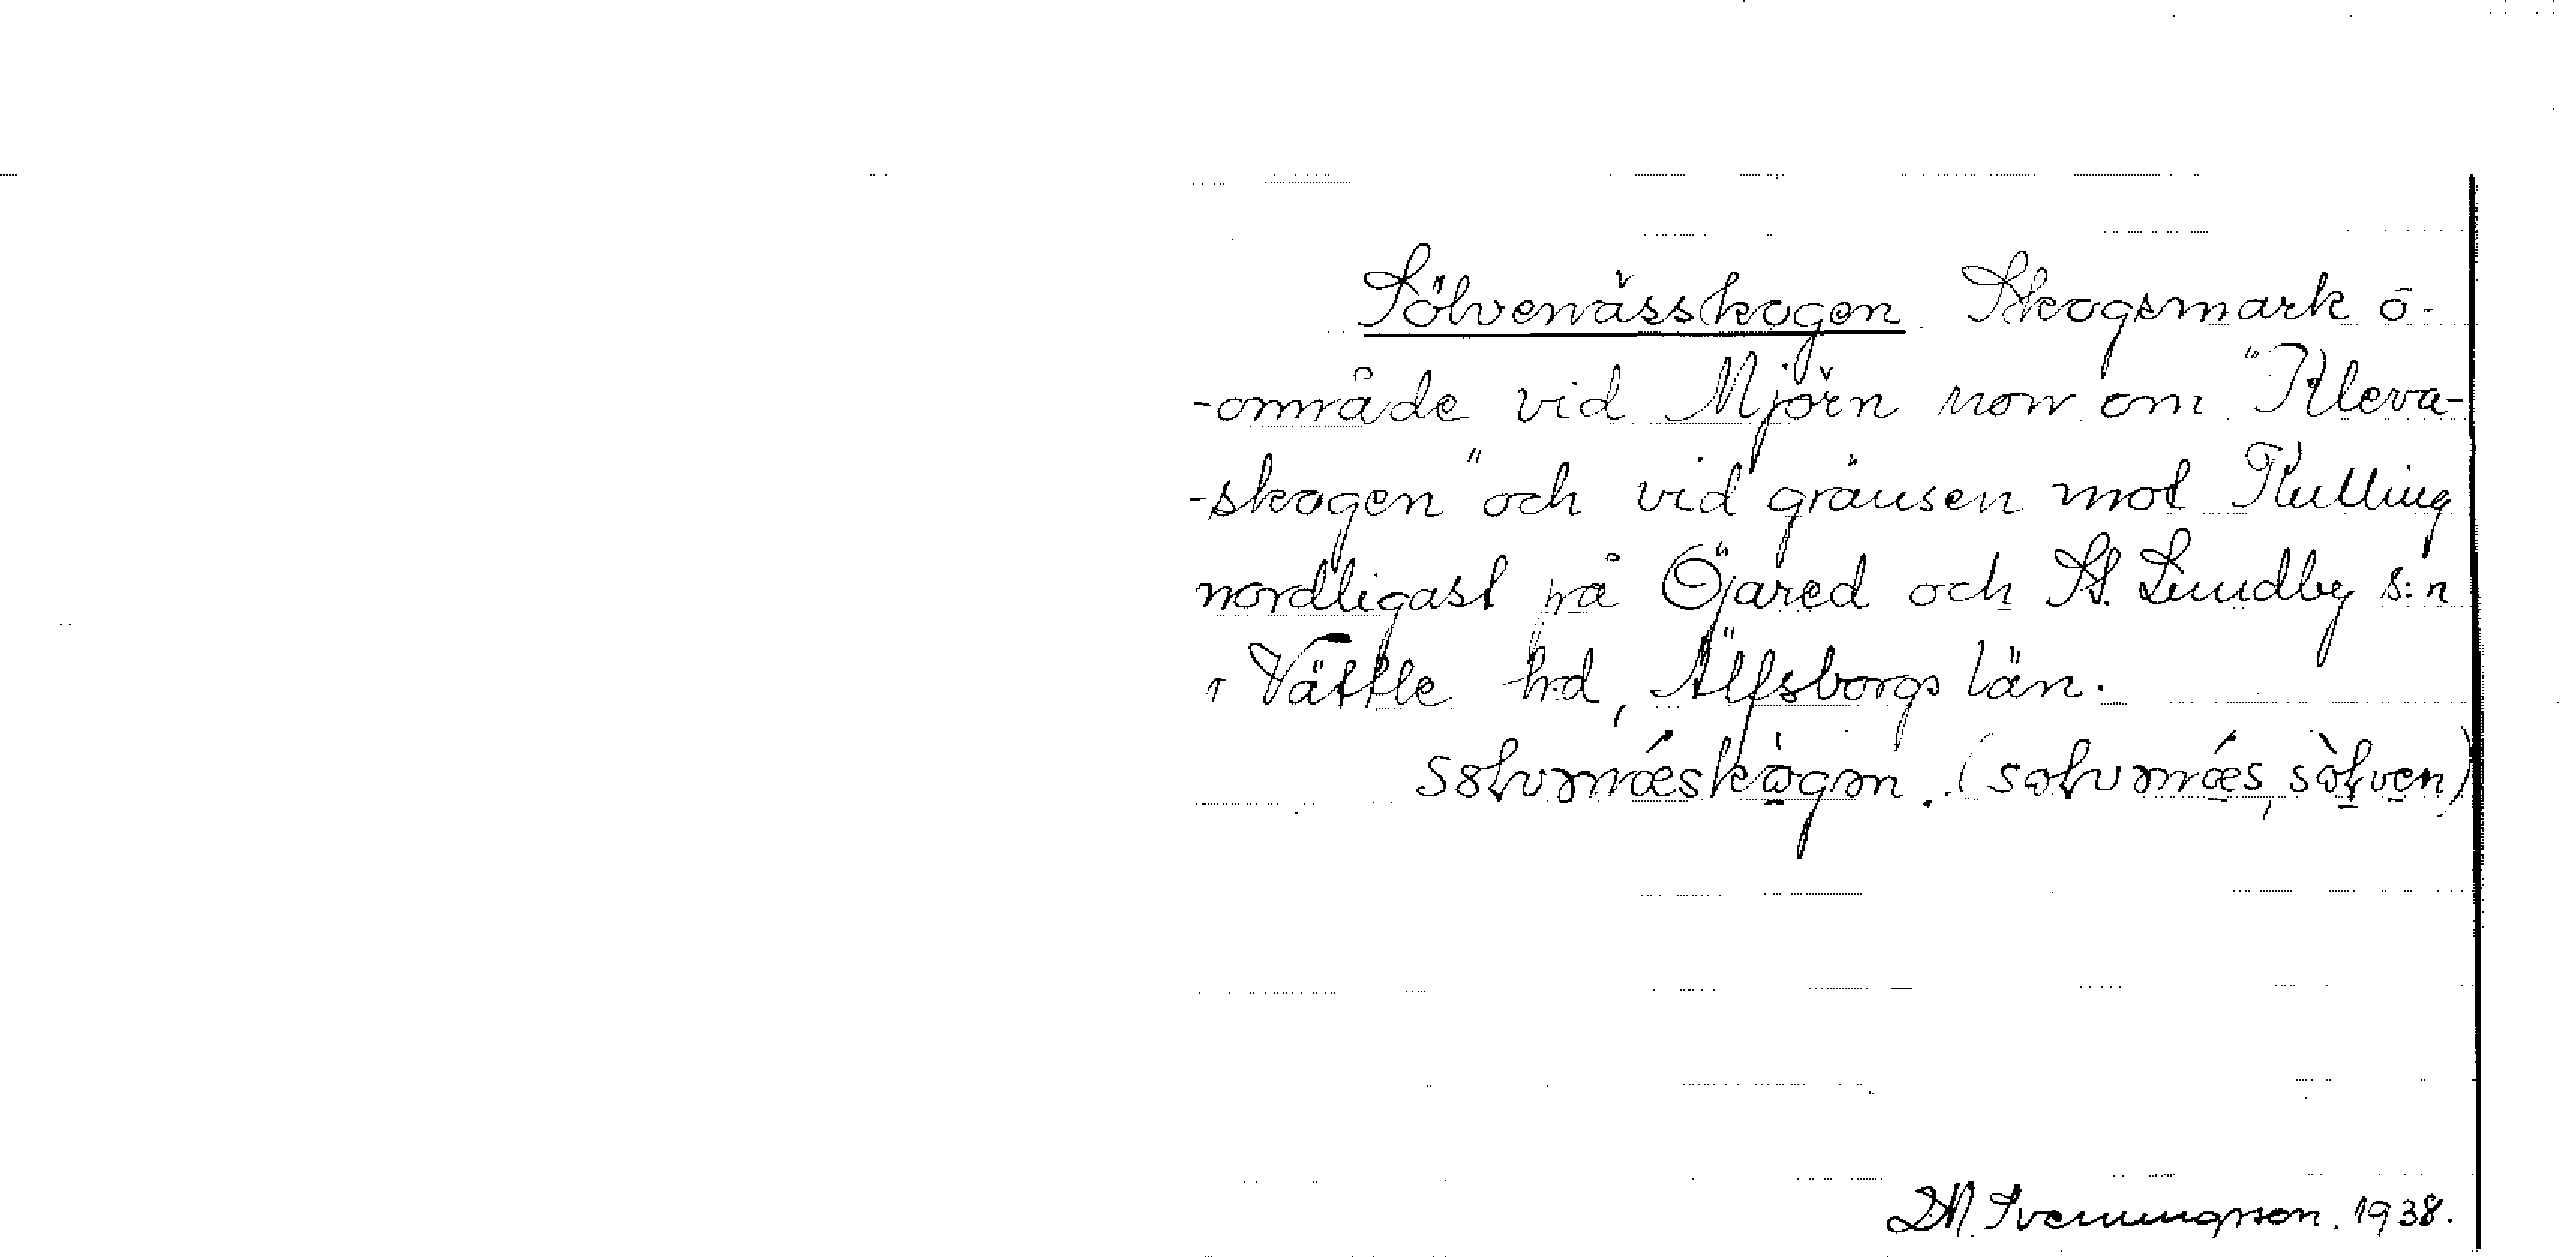 Sölvenässkogen. Skogsmark o.
-område vid Mjörn nov om "Kleva-
-skogen" och vid gränsen mot Kulling
nordligast på Öjared och St. Lundby s:n
i Vättle hd, Älfsborgs län.
sölvənǽskògən. (sølvənǽs, sølven)
Svenungsson. 1938.